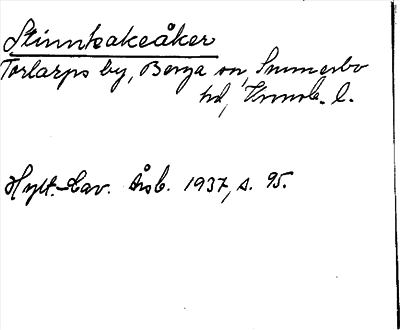 Stinnkakeåker
Torlarps by, Berga sn, Sunnerbo
hd, Kronob. l.
Hylt.-Cav. Årsb. 1937, s. 95.